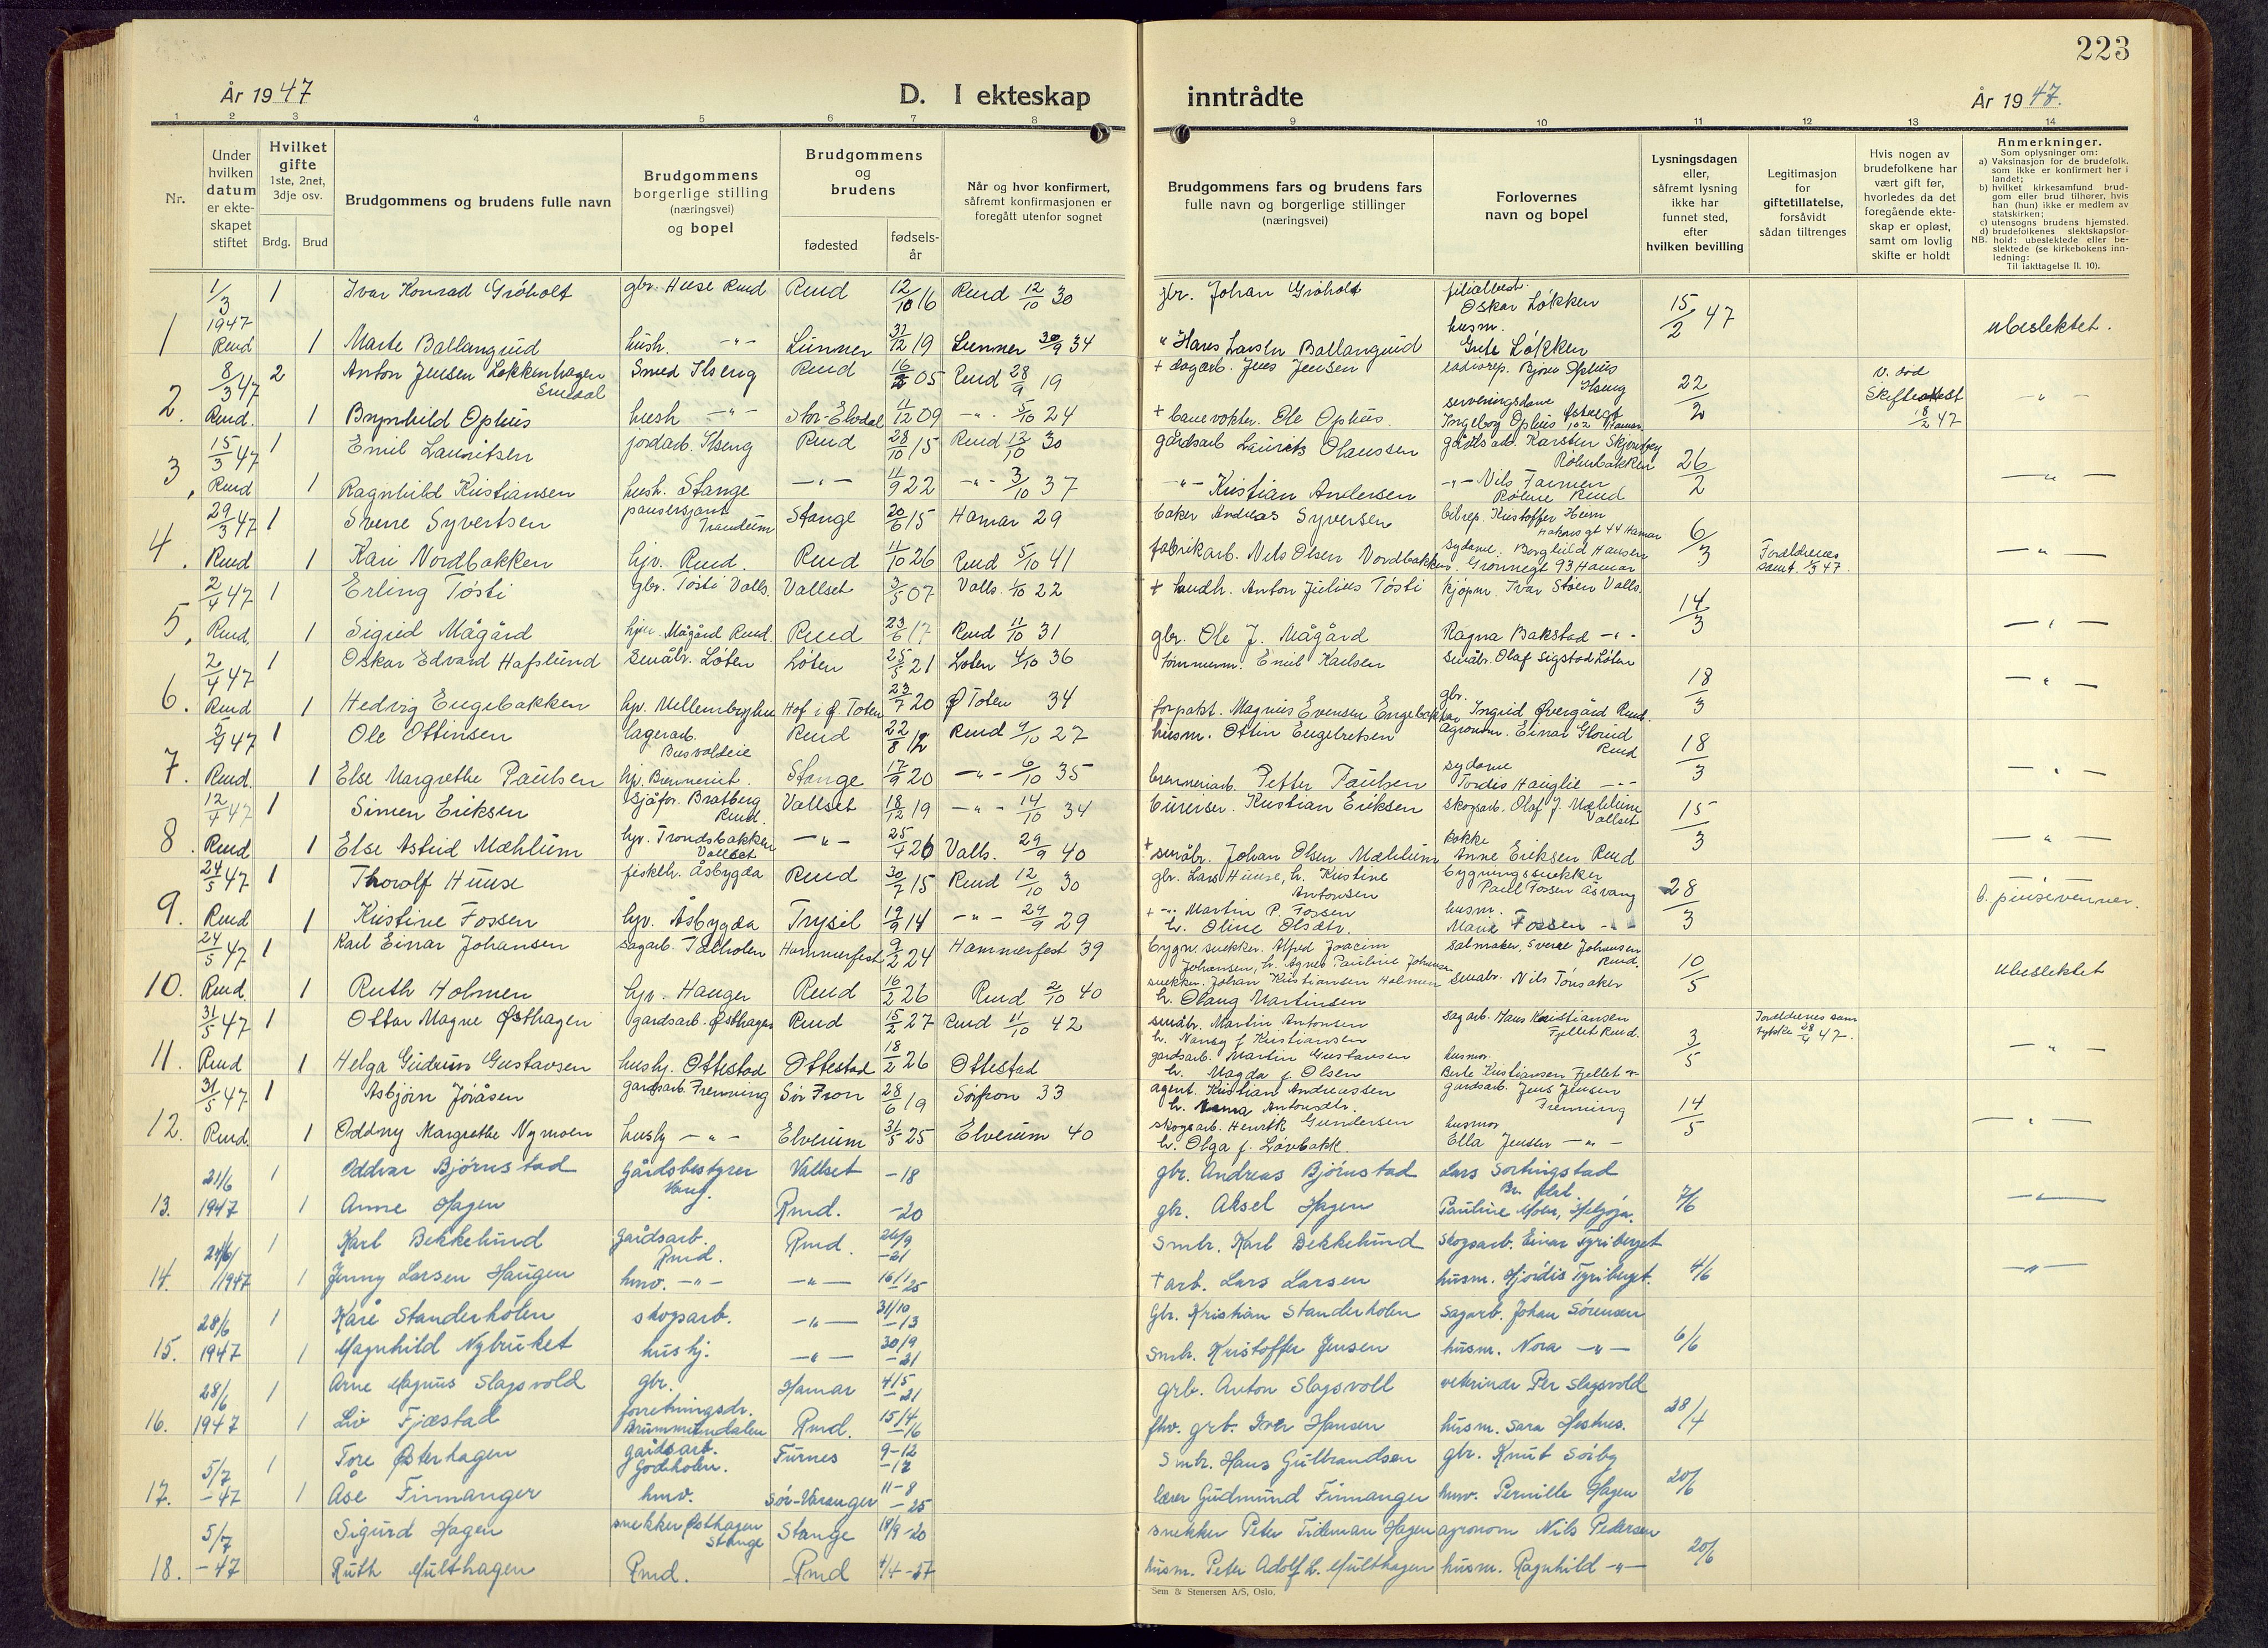 223
År 1947
D. I ekteskap inntrådte
År 1947.
1 2 3 4 5 6 7 8 9 10 11 12 13 14
Nr.
Under hvilken datum er ekteskapet stiftet
Hvilket gifte 1ste, 2net, 3dje osv.
Brdg. Brud
Brudgommens og brudens fulle navn
Brudgommens borgerlige stilling (næringsvei) og bopel
Brudgommens og brudens
fødested fødselsår
Når og hvor konfirmert, såfremt konfirmasjonen er foregått utenfor sognet
Brudgommens fars og brudens fars fulle navn og borgerlige stillinger (næringsvei)
Forlovernes navn og bopel
Lysningsdagen eller, såfremt lysning ikke har funnet sted, efter hvilken bevilling
Legitimasjon for giftetillatelse, forsåvidt sådan tiltrenges
Hvis nogen av brudefolkene har vært gift før, hvorledes da det foregående ekteskap er opløst, samt om lovlig skifte er holdt
Anmerkninger.
Som oplysninger om:
a) Vaksinasjon for de brudefolk, som ikke er konfirmert her i landet;
b) hvilket kirkesamfund brudgom eller brud tilhører, hvis han (hun) ikke er medlem av statskirken;
c) utensogns brudens hjemsted.
d) brudefolkenes slektskapsforhold: ubeslektede eller beslektede (se kirkebokens innledning:
NB.
Til iakttagelse II. 10).
1 1/3 1947 1 Ivar Konrad Gröholt gbr. Huse Rmd Rmd 12/10 16 Rmd 12/10 30 gbr. Johan Gröholt Oskar Løkken 15/2 47 ubeslektet.
Rmd 1 Marte Ballangrud hush. -"- Lunner 31/12 19 Lunner 30/9 34 " Hans Larsen Ballangrud husm. Grete Løkken
2. 8/3 47 2 Anton Jensen Løkkenhagen Smed Ilseng Rmd 05 Rmd 28/9 19 + dagarb. Jens Jensen Bjørn Ophus Ilseng 22/2 Skifteattest 18/2 47 - " -
Rmd. 1 Brynhild Ophus hush -"- Stor-Elvdal 11/12 09 -"- 5/10 24 + banevokter. Ole Ophus. serveringsdame Ingeborg Ophus Hamar
3. 15/3 47 1 Emil Lauritsen jordarb. Ilseng Rmd 28/10 15 Rmd 12/10 30 gårdsarb Laurits Olaussen gårdsarb. Karsten 26/2 - " -
Rmd 1 Ragnhild Kristiansen hush. Stange -"- 11/9 22 -"- 3/10 37 -"- Kristian Andersen -"- Nils Rmd
4. 29/3 47 1 Sverre Syvertsen Stange 20/6 15 Hamar 29 baker Andreas Syversen Kristoffer Heim 44 Hamar 6/3 Foreldrenes samt. 1/3 47 - " -
Rmd 1 Kari Nordbakken hjv. Rmd. Rmd 11/10 26 Rmd 5/10 41 fabrikarb. Nils Olsen Nordbakken sydame. Borghild Hansen Grønnegt 93 Hamar
5. 2/4 47 1 Erling Tøsti gbr. Tøsti Valls. Vallset 3/5 07 Valls. 1/10 22 + landh. Anton Julius Tøsti kjøpm. Ivar Støen Valls. 14/3 - " -
Rmd. 1 Sigrid Mågård hjv. Mågård Rmd. Rmd 23/6 17 Rmd 11/10 31 gbr. Ole J. Mågård Ragna Bakstad -"-
6. 2/4 47 1 Oskar Edvard Hafslund småbr. Løten Løten 25/5 21 Løten 4/10 36 tømmerm. Emil Karlsen småbr. Olaf Sigstad Løten 18/3 - " -
Rmd 1 Hedvig Engebakken hjv. Hof i Ø. Toten 23/7 20 Ø Toten 34 forpakt. Magnus Evensen Engebakken gbr. Ingrid Øvergård Rmd.
7. 5/4 47 1 Ole Ottinsen lagerarb. Rmd 22/8 12 Rmd 9/10 27 husm. Ottin Engebretsen Agronom. Einar Rmd 18/3 - " -
Rmd. 1 Else Margrethe Paulsen hjv. Brenneriet. Stange 17/9 20 -"- 6/10 35 brenneriarb. Petter Paulsen sydame Tordis Hauglie -"-
8. 12/4 47 1 Simen Eriksen sjåfør. Bratberg Rmd. Vallset 18/12 19 -"- 14/10 34 bureiser. Kristian Eriksen skogsarb. Olaf J. Mæhlum Vallset 15/3 - " -
Rmd 1 Else Astrid Mæhlum hjv. Trondsbakken Vallset -"- 25/4 20 Valls. 29/9 40 + småbr. Johan Olsen Mæhlum kokke Anne Eriksen Rmd
9. 24/5 47 1 Thorolf Huuse fiskeh. Åsbygda Rmd 30/7 15 Rmd 12/10 30 gbr. Lars Huuse, h. Kristine Antonsen bygningssnekker Paul Fossen Åsvang 28/3 b. pinsevenner.
Rmd 1 Kristine Fossen hjv. Åsbygda Trysil 19/9 14 -"- 29/9 29 + -"- Martin P. Fossen h. Oline Olsdtr. husm. Marie Fossen -"-
10. 24/5 47 1 Karl Einar Johansen sagarb. Hammerfest 9/2 24 Hammerfest 39 bygn. snekker. Alfred Joacim Johansen, h. Agnes Pauline Johansen salmaker. Sverre Johansen Rmd. 10/5 ubeslektet
Rmd. 1 Ruth Holmen hjv. Hauger Rmd 16/2 26 Rmd 2/10 40 snekker. Johan Kristiansen Holmen h. Olaug Martinsen småbr. Nils Tønsaker
11. 31/5 47 1 Ottar Magne Østhagen gardsarb. Østhagen Rmd 15/2 27 Rmd 11/10 42 småbr. Martin Antonsen h. Nancy f. Kristiansen sagarb. Hans Kristiansen Fjellet Rmd. 3/5 Foreldrenes samtykke 28/4 47. - " -
Rmd 1 Helga Gudrun Gustavsen hushj. Ottestad Ottestad 18/2 26 Ottestad gardsarb. Martin Gustavsen h. Magda f. Olsen husmor Berte Kristiansen Fjellet -"-
12. 31/5 47 1 Asbjørn Jøråsen gardsarb. Frenning Sør Fron 28/6 19 Sørfron 33 agent. Kristian Andreassen h. Antonsdtr. gardsarb. Jens Jensen Frenning 14/5 - " -
Rmd. 1 Oddny Margrethe Nymoen hushj -"- Elverum 31/5 25 Elverum 40 skogsarb. Henrik Gundersen h. Olga f. Løvbakk. husmor Ella Jensen -"-
13. 21/6 1947 1 Oddvar Bjørnstad Gårdsbestyrer Vang. Vallset -18 gbr. Andreas Bjørnstad Lars Sortingstad 7/6 - " -
1 Anne Hagen Rmd. -20 gbr. Aksel Hagen Pauline Moen, Helgøya.
14. 21/6 1947 1 Karl Bekkelund Gårdsarb. Rmd. Rmd. 26/9 -21 Smbr. Karl Bekkelund Skogsarb. Einar Tyriberget 4/6 - " -
1 Jenny Larsen Haugen hmv. -"- -"- 16/1 -25 + arb. Lars Larsen husm. Hjørdis Tyriberget.
15. 28/6 1947 1 Kåre Standerholen skogsarb. -"- 31/10 -13 Gbr. Kristian Standerholen sagarb. Johan Sørensen 6/6
1 Magnhild Nybruket hushj. -"- 30/9 -21 Smbr. Kristoffer Jensen husm. Nora -"-
16. 28/6 1947 1 Arne Magnus Slagsvold gbr. Hamar 4/5 -21 grb. Anton Slagsvoll veterinær Per Slagsvold 28/4
1 Liv Fjæstad forretningsdr. Brummundalen Rmd. 15/4 -16 fhv. grb. Iver Hansen husm. Sara Hestnes.
17. 5/7 -47 1 Tore Østerhagen gårdsarb. Godeholen. Furnes 9-12 -17 Smbr. Hans Gulbrandsen gbr. Knut Sørby 20/6
1 Åse Finnanger hmv. Sør-Varanger 11-8 -25 lærer Gudmund Finnanger hmv. Pernille Hagen
18. 5/7 -47 Sigurd Hagen snekker Østhagen Stange Stange 18/9 -20 snekker Peter Tideman Hagen agronom Nils Pedersen 20/6
Ruth Multhagen Rmd. Rmd 4/4 -27 husm. Peter Adolf L. Multhagen husm. Ragnhild -"-
Sem & Stenersen A/S, Oslo.